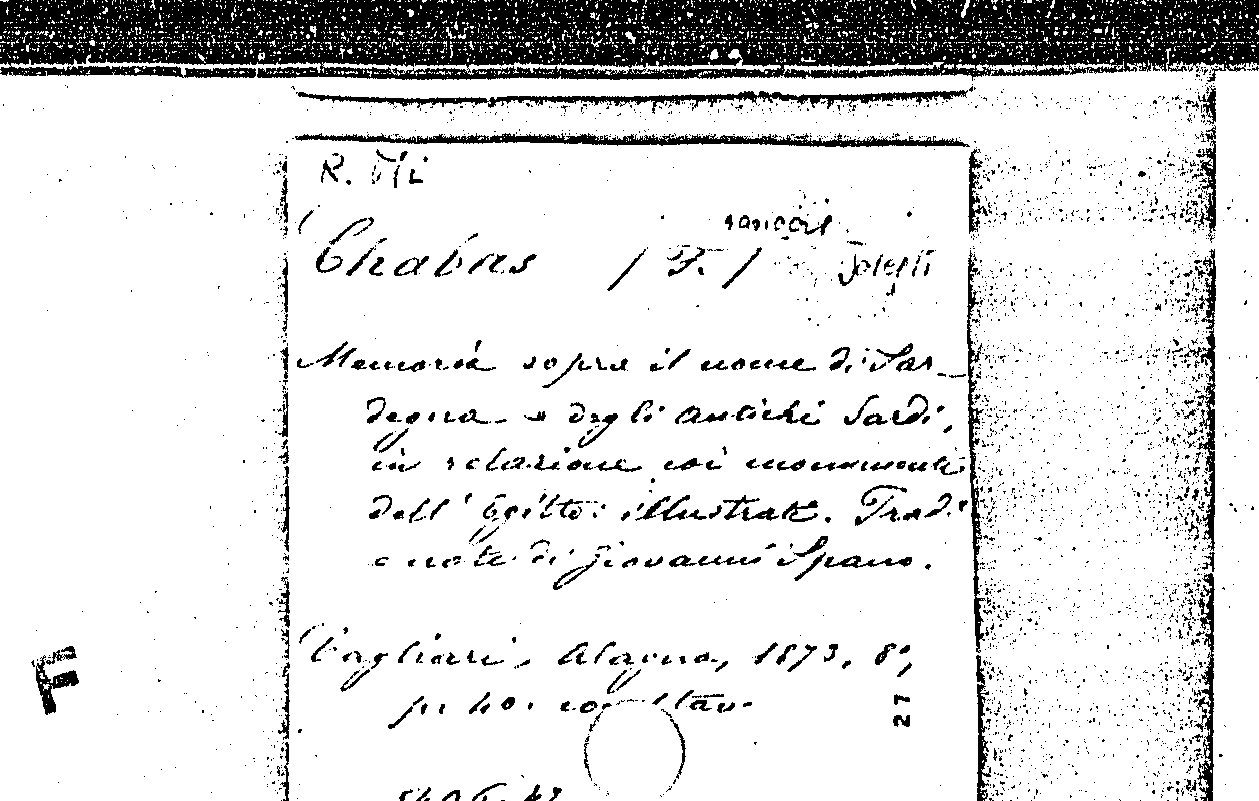 Chabas / F. / Joseph
Memoria sopra il nome di Sar-
degna e degli antichi Sardi,
in relazione coi monumenti
dell' Egitto illustrati. Trad.
e note di Giovanni Spano.
Cagliari, Alagna, 1873, 8°,
p. 40. con 1 tav.
27
F